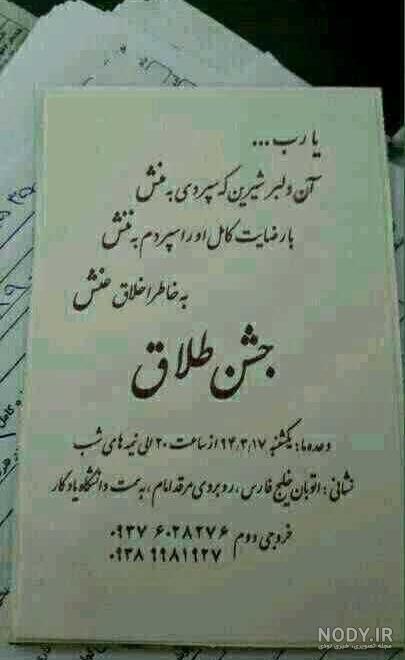 یا رب ...
آن دلبر شیرین که سپردی به منش
با رضایت کامل او را سپردم به ننش
به خاطر اخلاق عنش
جشن طلاق
وعده ما: یکشنبه ۹۴,۳,۱۷ از ساعت ۲۰ الی نیمه های شب
نشانی: اتوبان خلیج فارس، روبروی مرقد امام، به سمت دانشگاه یادگار
خروجی دوم ۰۹۳۷ ۶۰۲۸۲۷۶
۰۹۳۸ ۹۹۸۱۹۲۷
NODY.IR
مجله تصویری، خبری نودی